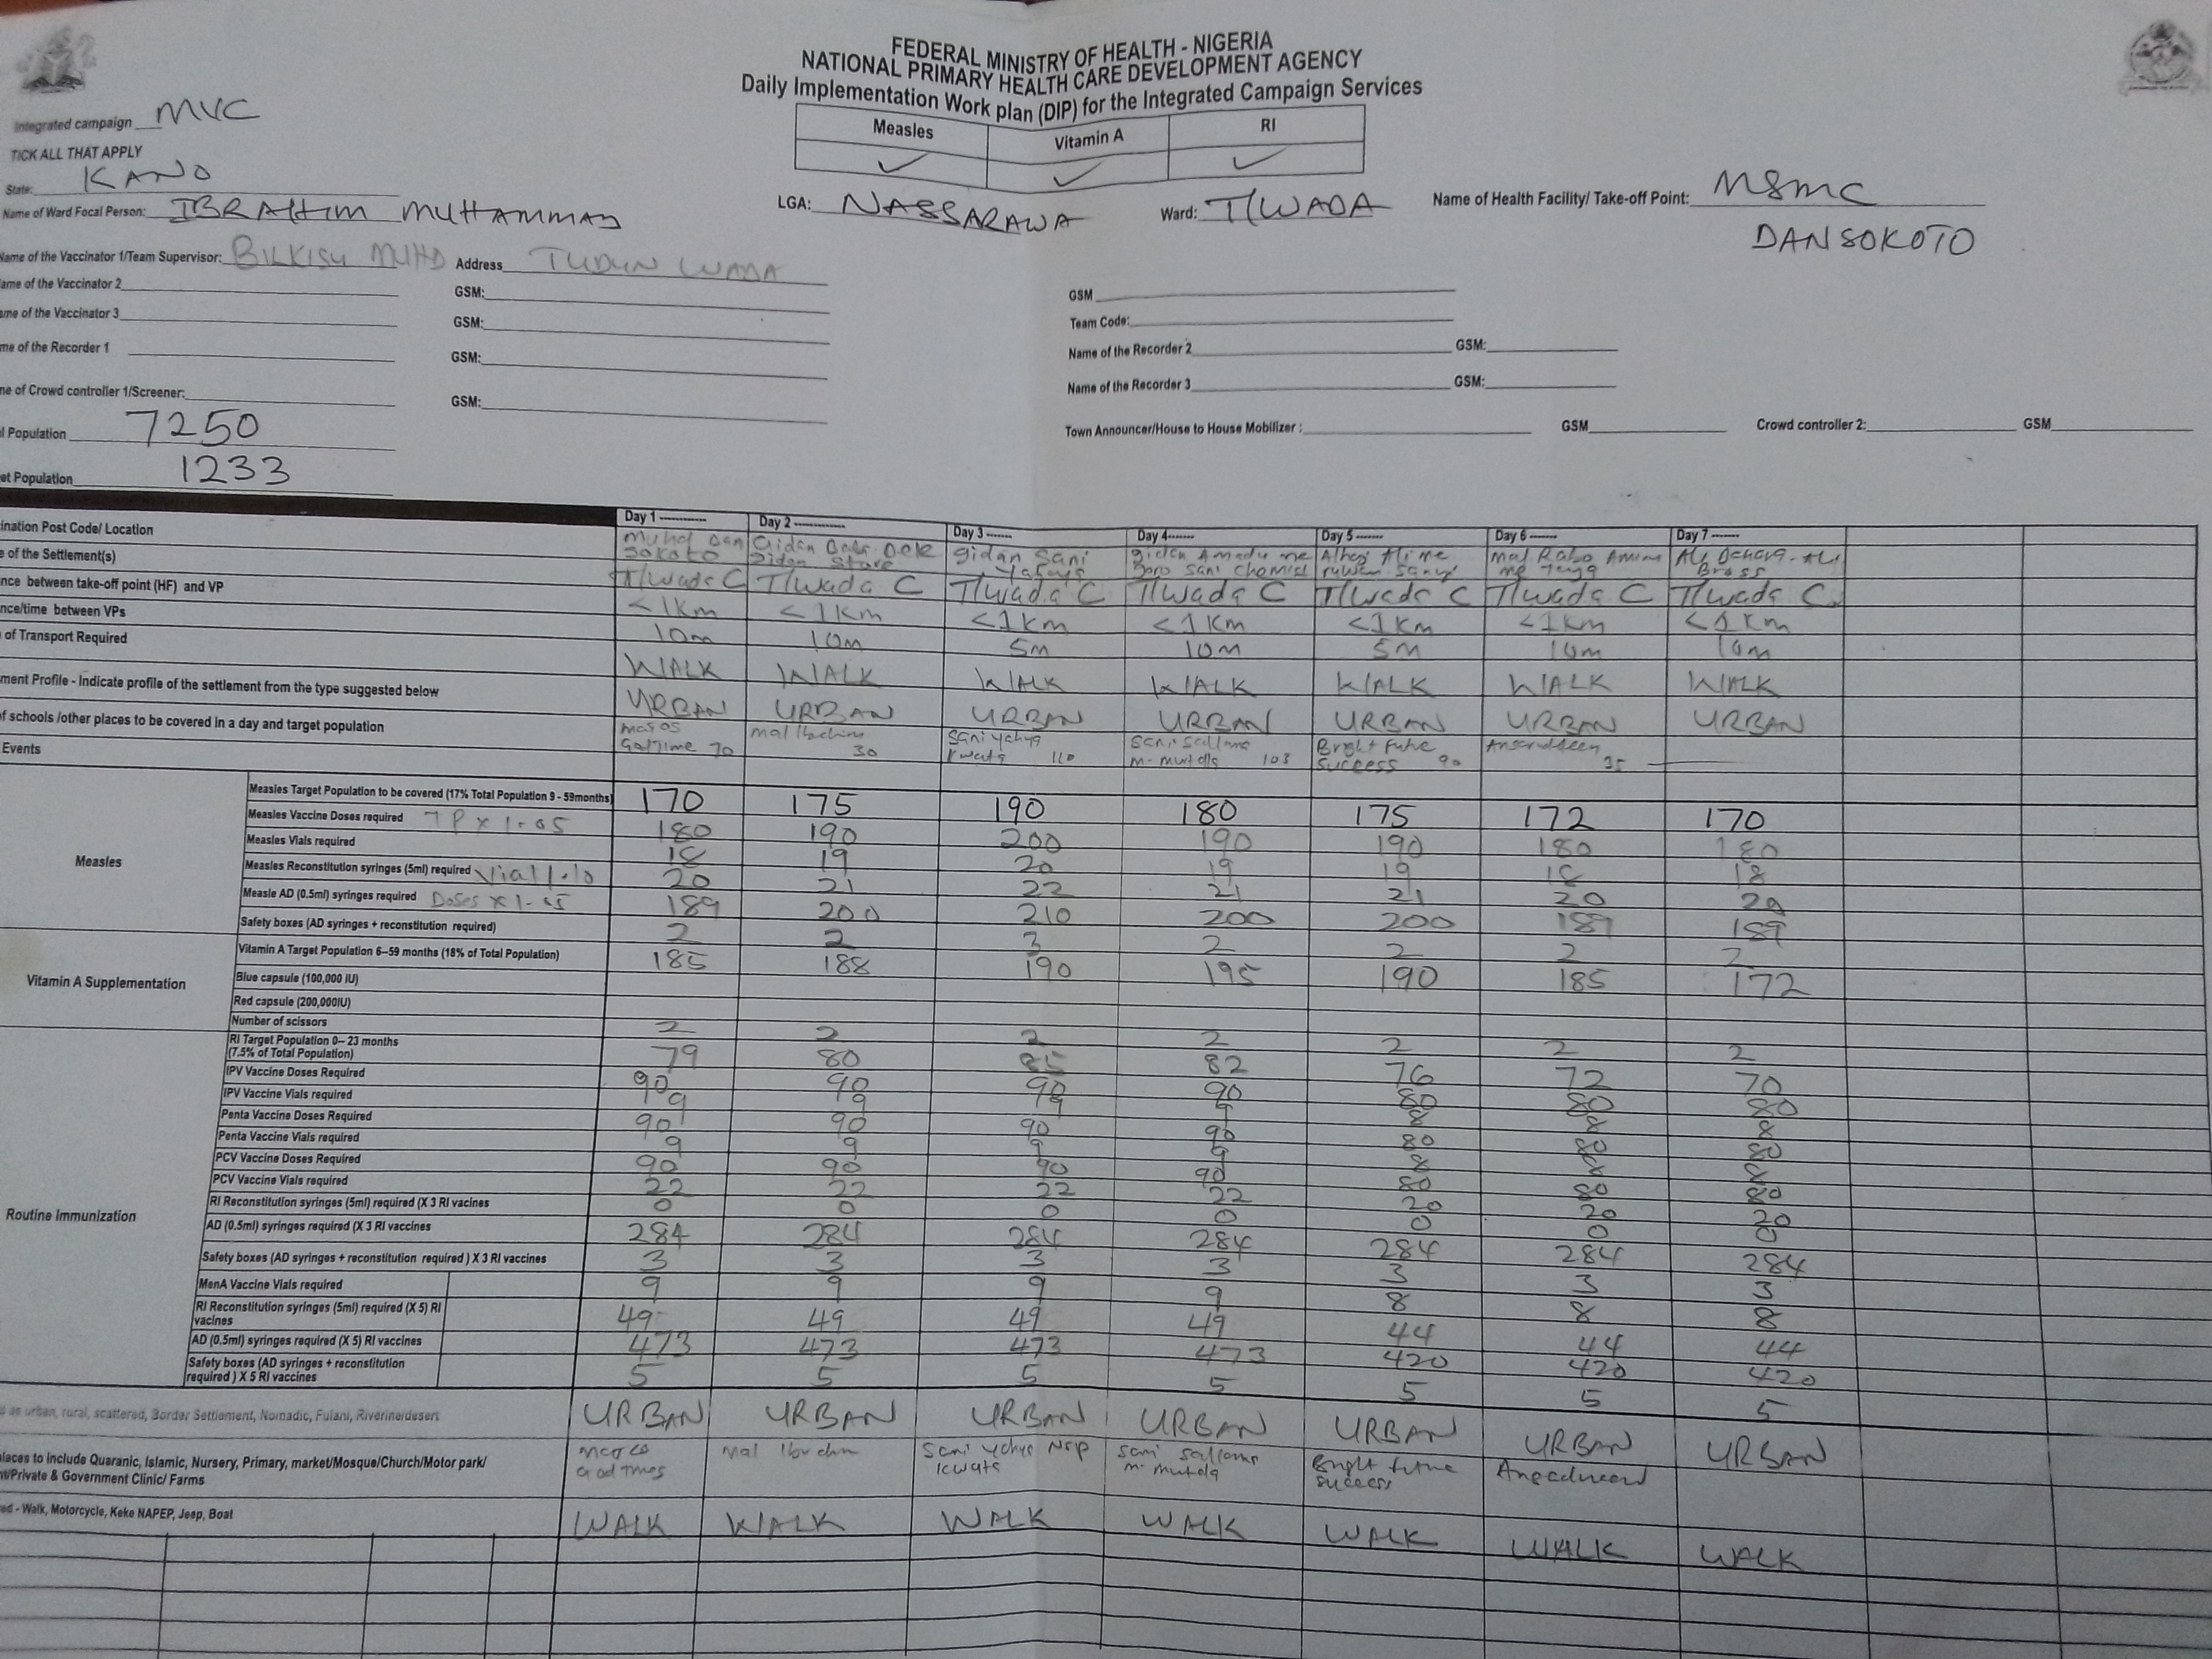 FEDERAL MINISTRY OF HEALTH - NIGERIA
NATIONAL PRIMARY HEALTH CARE DEVELOPMENT AGENCY
Daily Implementation Work plan (DIP) for the Integrated Campaign Services
Integrated campaign MVC
Measles Vitamin A RI
✓ ✓ ✓
TICK ALL THAT APPLY
State: KANO
Name of Ward Focal Person: IBRAHIM MUHAMMAD LGA: NASSARAWA Ward: T/WADA Name of Health Facility/ Take-off Point: MSMC
DANSOKOTO
Name of the Vaccinator 1/Team Supervisor: BILKISU MUHD Address TUDUN WADA
ame of the Vaccinator 2 GSM: GSM
ame of the Vaccinator 3 GSM: Team Code:
me of the Recorder 1 GSM: Name of the Recorder 2 GSM:
ne of Crowd controller 1/Screener: GSM: Name of the Recorder 3 GSM:
l Population 7250 Town Announcer/House to House Mobilizer : GSM Crowd controller 2: GSM
et Population 1233
Day 1 Day 2 Day 3 Day 4 Day 5 Day 6 Day 7
ination Post Code/ Location Muhd Dan Sokoto gidan Sani sani chemist
e of the Settlement(s) T/Wada C T/Wada C T/Wada C T/Wada C T/Wada C T/Wada C T/Wada C
nce between take-off point (HF) and VP <1Km <1Km <1Km <1Km <1Km <1Km <1Km
nce/time between VPs 10m 10m 5m 10m 5m 10m 10m
of Transport Required WALK WALK WALK WALK WALK WALK WALK
ment Profile - Indicate profile of the settlement from the type suggested below URBAN URBAN URBAN URBAN URBAN URBAN URBAN
f schools /other places to be covered in a day and target population 70 30 Sani Yahya Kwata 110 103 Bright Future Success 90 35
Events
Measles
Measles Target Population to be covered (17% Total Population 9 - 59months) 170 175 190 180 175 172 170
Measles Vaccine Doses required TP x 1.05 180 190 200 190 190 180 180
Measles Vials required 18 19 20 19 19 18 18
Measles Reconstitution syringes (5ml) required Vial 1.10 20 21 22 21 21 20 20
Measle AD (0.5ml) syringes required Doses x 1.05 189 200 210 200 200 189 189
Safety boxes (AD syringes + reconstitution required) 2 2 3 2 2 2 2
Vitamin A Supplementation
Vitamin A Target Population 6–59 months (18% of Total Population) 185 188 190 195 190 185 172
Blue capsule (100,000 IU)
Red capsule (200,000IU)
Number of scissors 2 2 2 2 2 2 2
Routine Immunization
RI Target Population 0– 23 months
(7.5% of Total Population) 79 80 85 82 76 72 70
IPV Vaccine Doses Required 90 90 90 90 80 80 80
IPV Vaccine Vials required 9 9 9 9 8 8 8
Penta Vaccine Doses Required 90 90 90 90 80 80 80
Penta Vaccine Vials required 9 9 9 9 8 8 8
PCV Vaccine Doses Required 90 90 90 90 80 80 80
PCV Vaccine Vials required 22 22 22 22 20 20 20
RI Reconstitution syringes (5ml) required (X 3 RI vacines 0 0 0 0 0 0 0
AD (0.5ml) syringes required (X 3 RI vaccines 284 284 284 284 284 284 284
Safety boxes (AD syringes + reconstitution required ) X 3 RI vaccines 3 3 3 3 3 3 3
MenA Vaccine Vials required 9 9 9 9 8 8 8
RI Reconstitution syringes (5ml) required (X 5) RI
vacines 49 49 49 49 44 44 44
AD (0.5ml) syringes required (X 5) RI vaccines 473 473 473 473 420 420 420
Safety boxes (AD syringes + reconstitution
required ) X 5 RI vaccines 5 5 5 5 5 5 5
s as urban, rural, scattered, Border Settlement, Nomadic, Fulani, Riverine/desert URBAN URBAN URBAN URBAN URBAN URBAN URBAN
laces to Include Quaranic, Islamic, Nursery, Primary, market/Mosque/Church/Motor park/
nt/Private & Government Clinic/ Farms Bright future success
ed - Walk, Motorcycle, Keke NAPEP, Jeep, Boat WALK WALK WALK WALK WALK WALK WALK